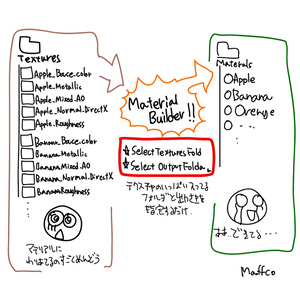 Textures
Apple_Bace.color
Apple.Metallic
Apple.Mixed.AO
Apple_Normal.DirectX
Apple.Roughness
Banana_Bace.color
Banana.Metallic
Banana.Mixed.AO
Banana.Normal.DirectX
Banana.Roughness
マテリアルに
わりあてるのすごくめんどう
Material
Builder!!
Select Textures Fold
Select Output Folda.
テクスチャのいっぱい入ってる
フォルダと出力さきを
指定するだけ.
Materials
Apple
Banana
Orenge
おお..できてる...
Maffco